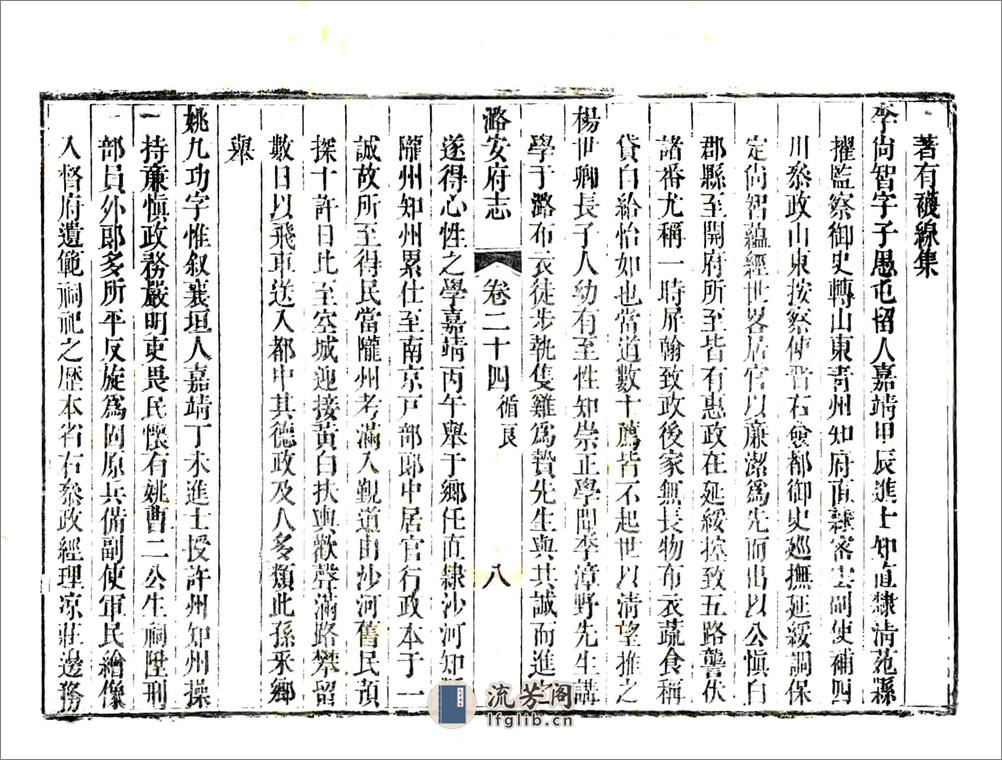 著有襪線集
李尚智字子愚屯留人嘉靖甲辰進士知直隸清苑縣
擢監察御史轉山東青州知府直隸密雲副使補四
川叅政山東按察使晉右僉都御史廵撫延綏調保
定尚智蘊經世畧居官以廉潔爲先而出以公愼自
郡縣至開府所至皆有惠政在延綏控致五路讋伏
諸番尤稱一時屏翰致政後家無長物布衣蔬食稱
貸自給怡如也當道數十薦皆不起世以清望推之
楊世卿長子人幼有至性知崇正學聞李漳野先生講
學于潞布衣徒步執隻雞爲贄先生與其誠而進之
潞安府志
卷二十四
循良
八
遂得心性之學嘉靖丙午舉于鄉任直隸沙河知
隴州知州累仕至南京戸部郎中居官行政本于一
誠故所至得民當隴州考滿入覲道由沙河舊民預
探十許日比至空城迎接黃白扶輿歡聲滿路攀留
數日以飛車送入都中其德政及人多類此孫釆鄉
舉
姚九功字惟叙襄垣人嘉靖丁未進士授許州知州操
持廉愼政務嚴明吏畏民懷有姚曹二公生祠陞刑
部員外郎多所平反旋爲固原兵備副使軍民繪像
入督府遺範祠祀之歷本省右叅政經理凉莊邊務
流芳阁
lfglib.cn